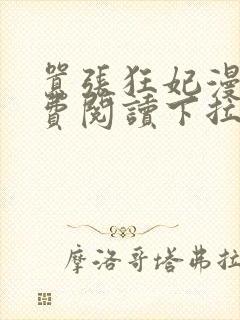 囂張狂妃漫
費閱讀下拉
摩洛哥塔弗拉